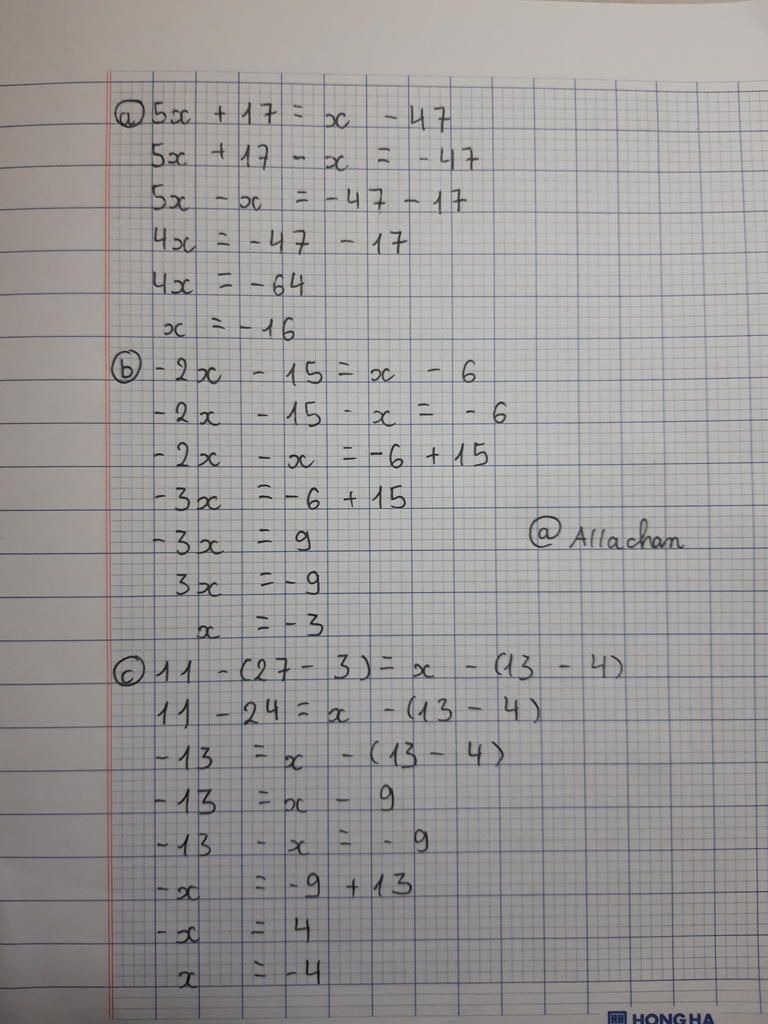 ⓐ 5x + 17 = x - 47
5x + 17 - x = - 47
5x - x = - 47 - 17
4x = - 47 - 17
4x = - 64
x = - 16
ⓑ - 2x - 15 = x - 6
- 2x - 15 - x = - 6
- 2x - x = - 6 + 15
- 3x = - 6 + 15
- 3x = 9
@ Allachan
3x = - 9
x = - 3
ⓒ 11 - (27 - 3) = x - (13 - 4)
11 - 24 = x - (13 - 4)
- 13 = x - (13 - 4)
- 13 = x - 9
- 13 - x = - 9
- x = - 9 + 13
- x = 4
x = - 4
HH HONG HA